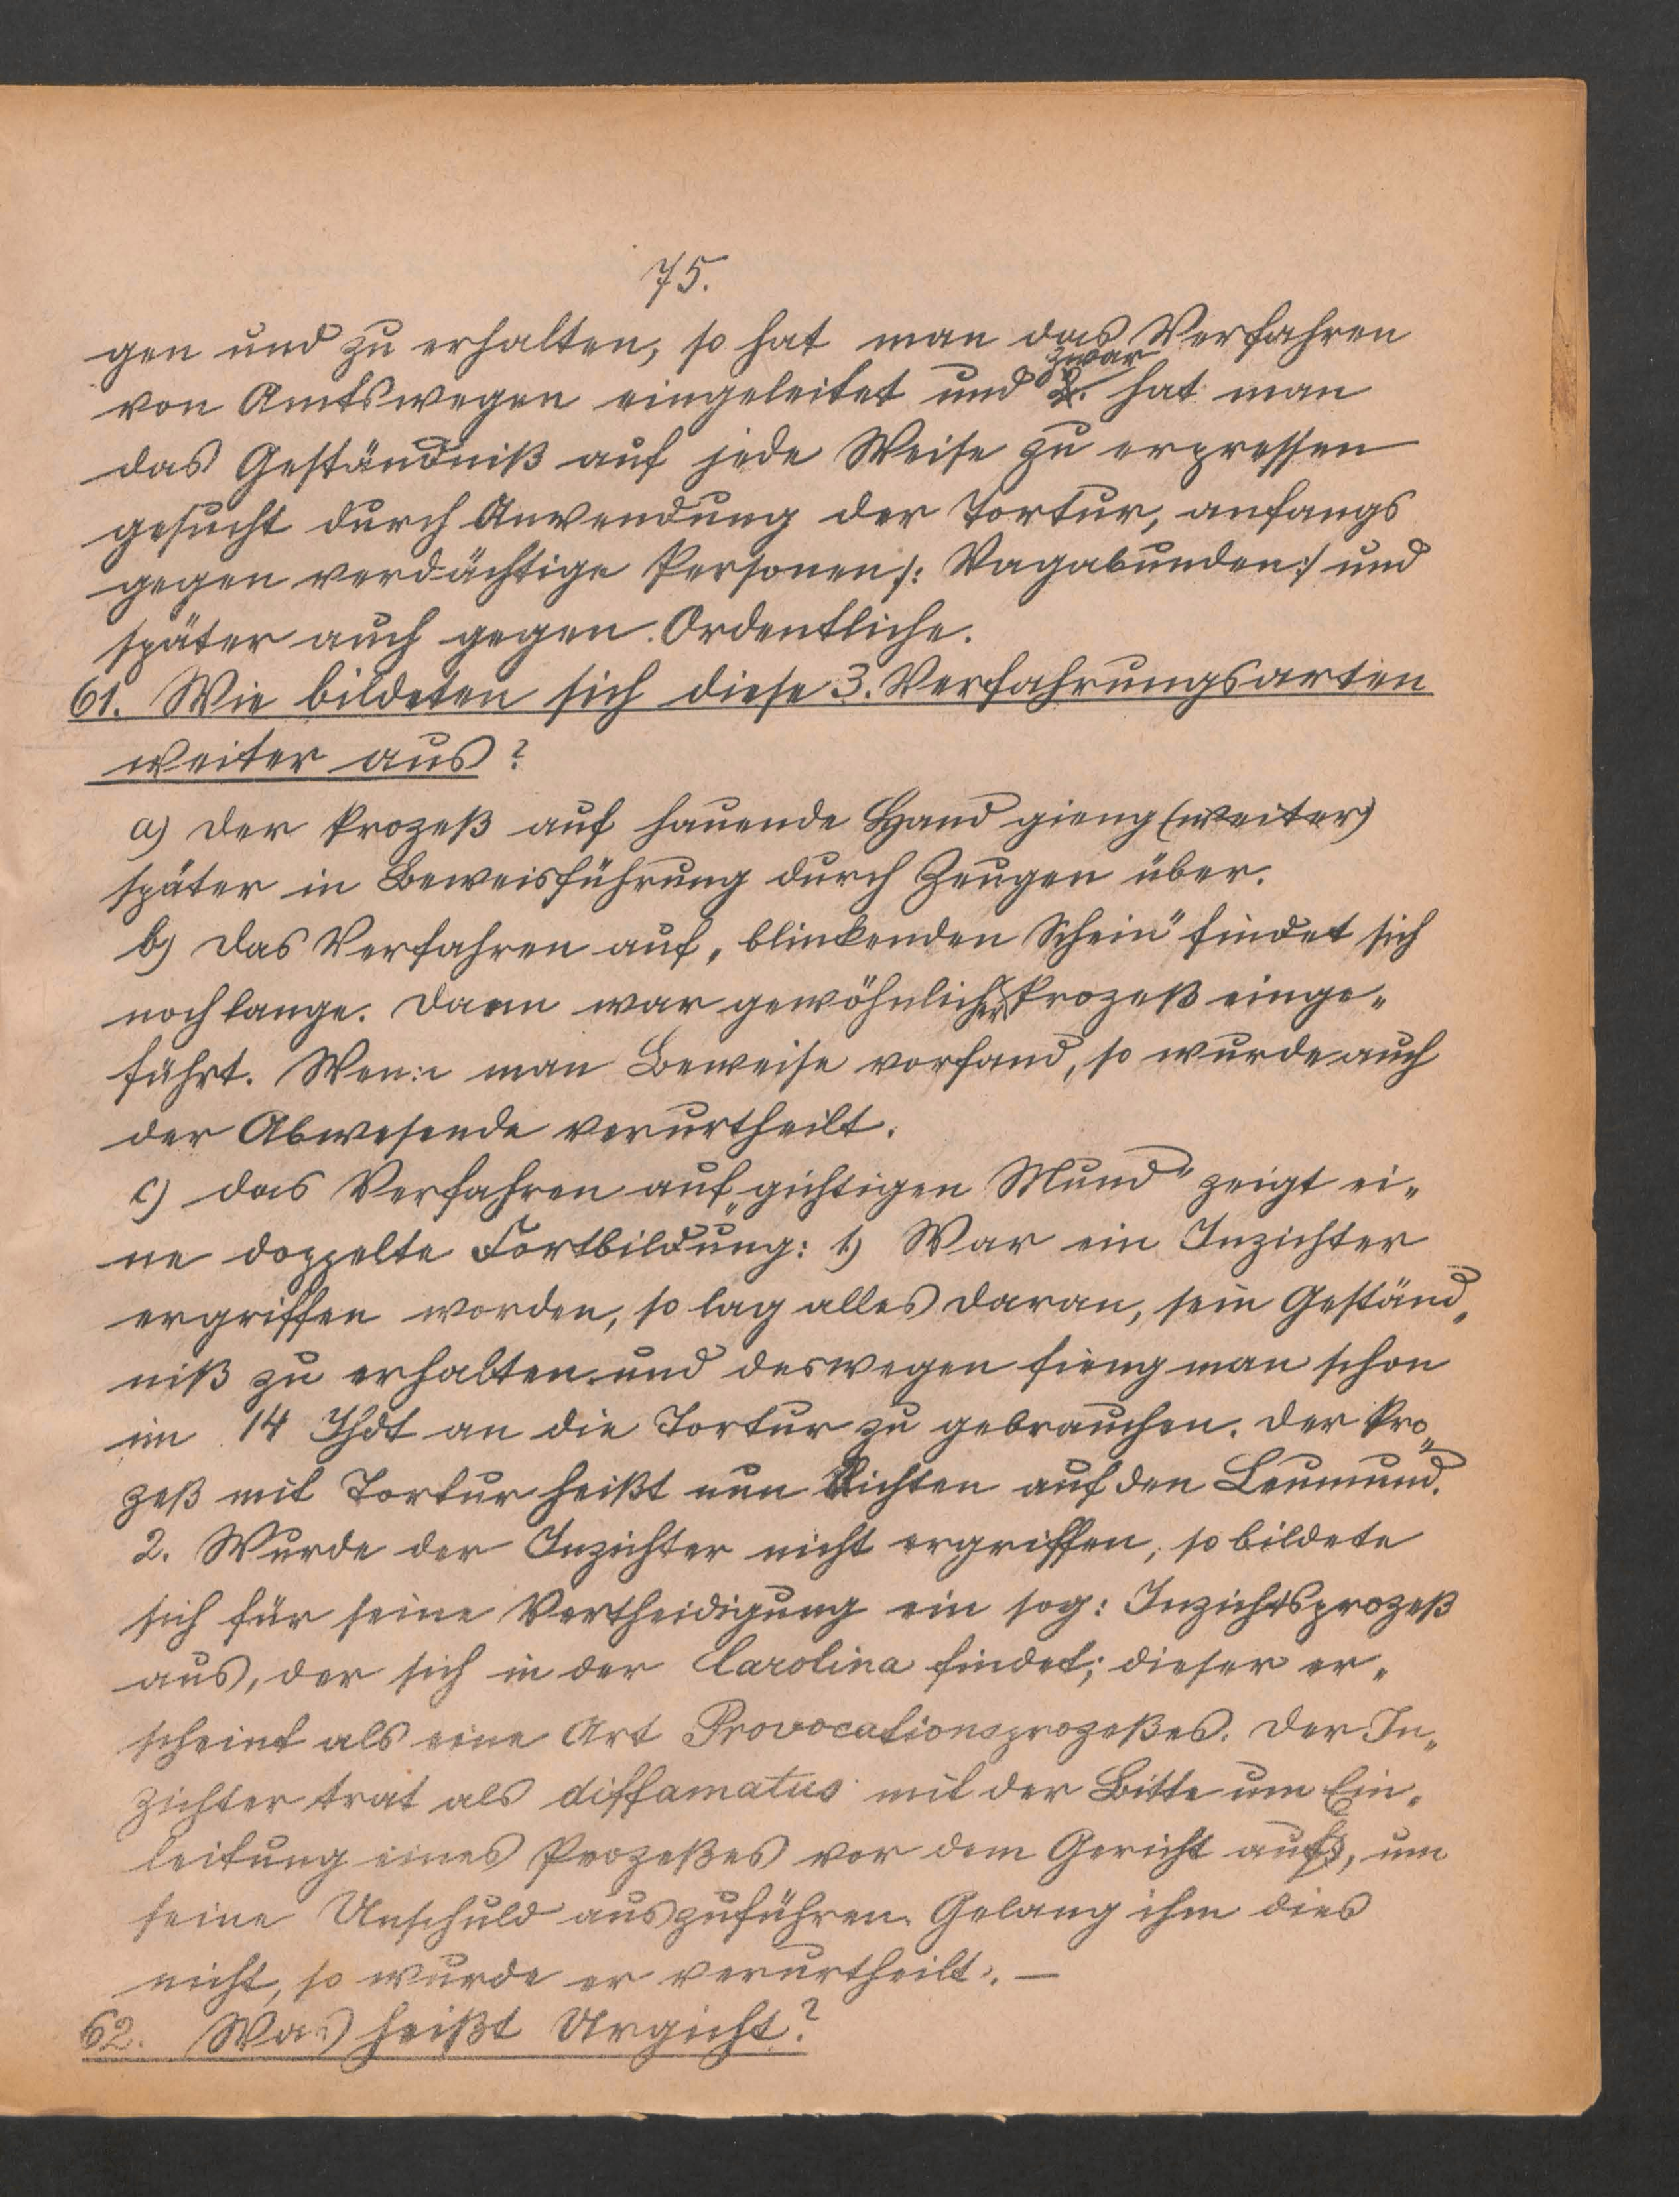 75.
gen und zu erhalten, so hat man das Verfahren
von Amtswegen eingeleitet und zwar 2. hat man
das Geständniß auf jede Weise zu erpressen
gesucht durch Anwendung der Tortur, anfangs
gegen verdächtige Personen /: Vagabunden :/ und
später auch gegen Ordentliche.
61. Wie bildeten sich diese 3. Verfahrungsarten
weiter aus?
a) der Prozeß auf hauende Hand gieng (weiter)
später in Beweisführung durch Zeugen über.
b) das Verfahren auf „blinkenden Schein" findet sich
noch lange. Dann war gewöhnlicher Prozeß einge„
führt. Wenn man Beweise vorfand, so wurde auch
der Abwesende verurtheilt.
c) das Verfahren auf „gichtigen Mund" zeigt ei„
ne doppelte Fortbildung: 1) War ein Inzichter
ergriffen worden, so lag alles daran, sein Geständ„
niß zu erhalten und deswegen fieng man schon
im 14 Jhdt an die Tortur zu gebrauchen. Der Pro„
zeß mit Tortur heißt nun Richten auf den Leumund.
2. Wurde der Inzichter nicht ergriffen, so bildete
sich für seine Vertheidigung ein sog: Inzichtsprozeß
aus, der sich in der Carolina findet; dieser er„
scheint als eine Art Provocationsprozeßes. Der In„
zichter trat als diffamatus mit der Bitte um Ein„
leitung eines Prozeßes vor dem Gericht auf, um
seine Unschuld auszuführen. Gelang ihm dies
nicht, so wurde er verurtheilt. —
62. Was heißt Urgicht?